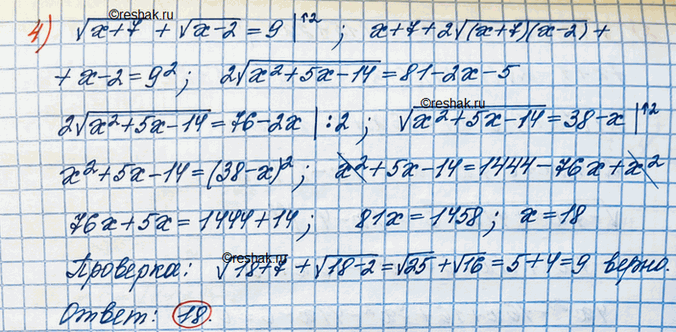 ©reshak.ru
4) √(x+7) + √(x-2) = 9 |↑2 ; x+7+2√((x+7)(x-2)) +
+ x-2 = 9² ; 2√(x²+5x-14) = 81-2x-5
©reshak.ru
2√(x²+5x-14) = 76-2x | :2 ; √(x²+5x-14) = 38-x |↑2
x²+5x-14 = (38-x)² ; x²+5x-14 = 1444-76x+x²
76x+5x = 1444+14 ; 81x = 1458 ; x = 18
©reshak.ru
Проверка: √(18+7) + √(18-2) = √25 + √16 = 5+4 = 9 верно.
Ответ: 18.